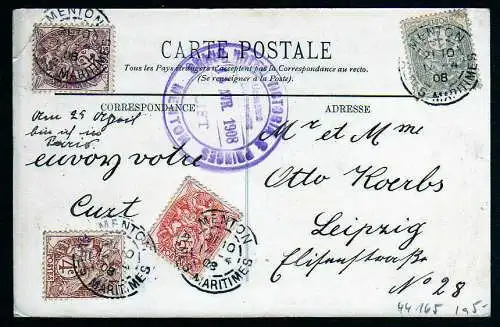 CARTE POSTALE
Tous les Pays étrangers n'acceptent pas la Correspondance au recto.
(Se renseigner à la Poste).
CORRESPONDANCE
ADRESSE
MENTON
MARITIMES
MENTON
MARITIMES
VICTORIA & PRINCES
AVR. 1908
MENTON
am 25 April
bin ich in
Paris.
envoy votre
Curt
Mr et Mme
Otto Koerbs
Leipzig
Elisenstraße
No 28
MENTON
MARITIMES
MENTON
MARITIMES
44165